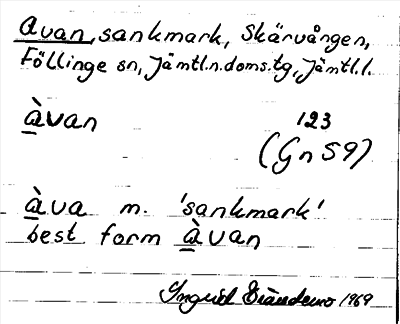 Avan, sankmark, Skärvången,
Föllinge sn, Jämtl.n.doms.tg, Jämtl.l.
àvan
123
(Gn S9)
àva m. 'sankmark'
best form àvan
Ingrid 1969